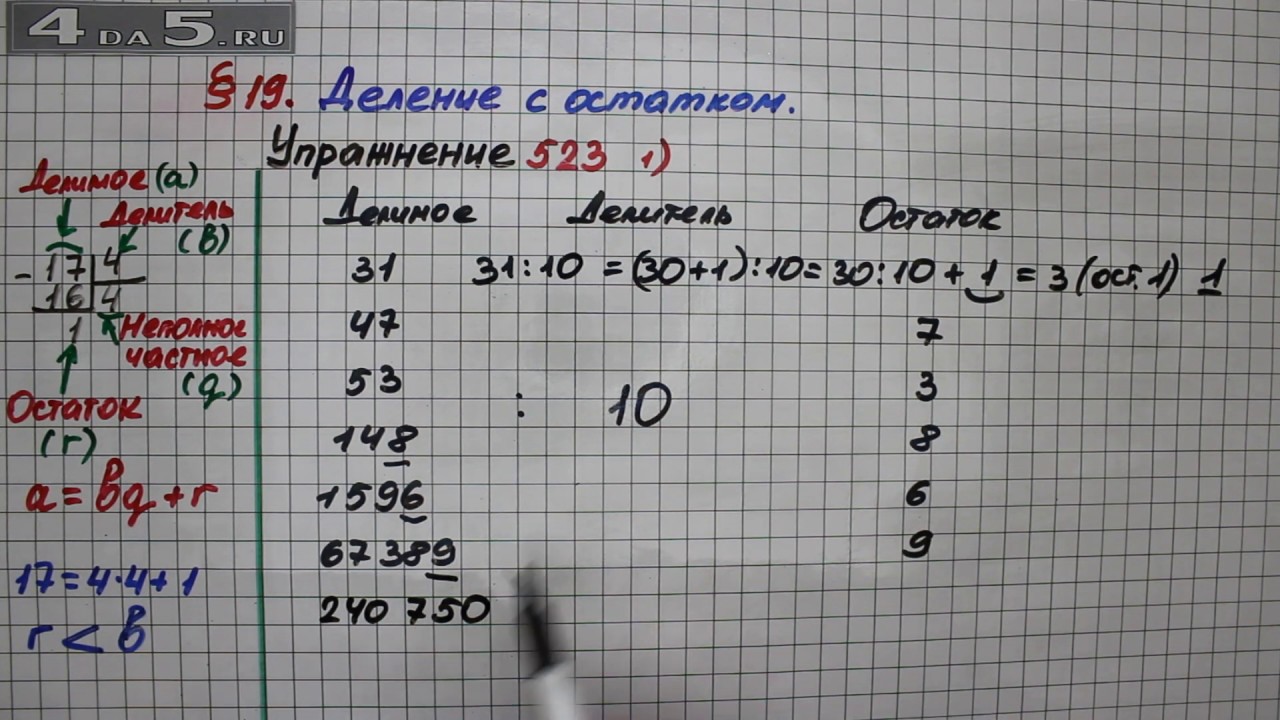 4DA5.RU
§ 19. Деление с остатком.
Упражнение 523 1)
Делимое (a)
Делитель
(b)
- 17 4
16 4
1
Неполное
частное
(q)
Остаток
(r)
a = bq + r
17 = 4·4 + 1
r < b
Делимое Делитель Остаток
31 31 : 10 = (30+1) : 10 = 30 : 10 + 1 = 3 (ост. 1) 1
47 7
53 3
: 10
148 8
1596 6
67 389 9
240 750